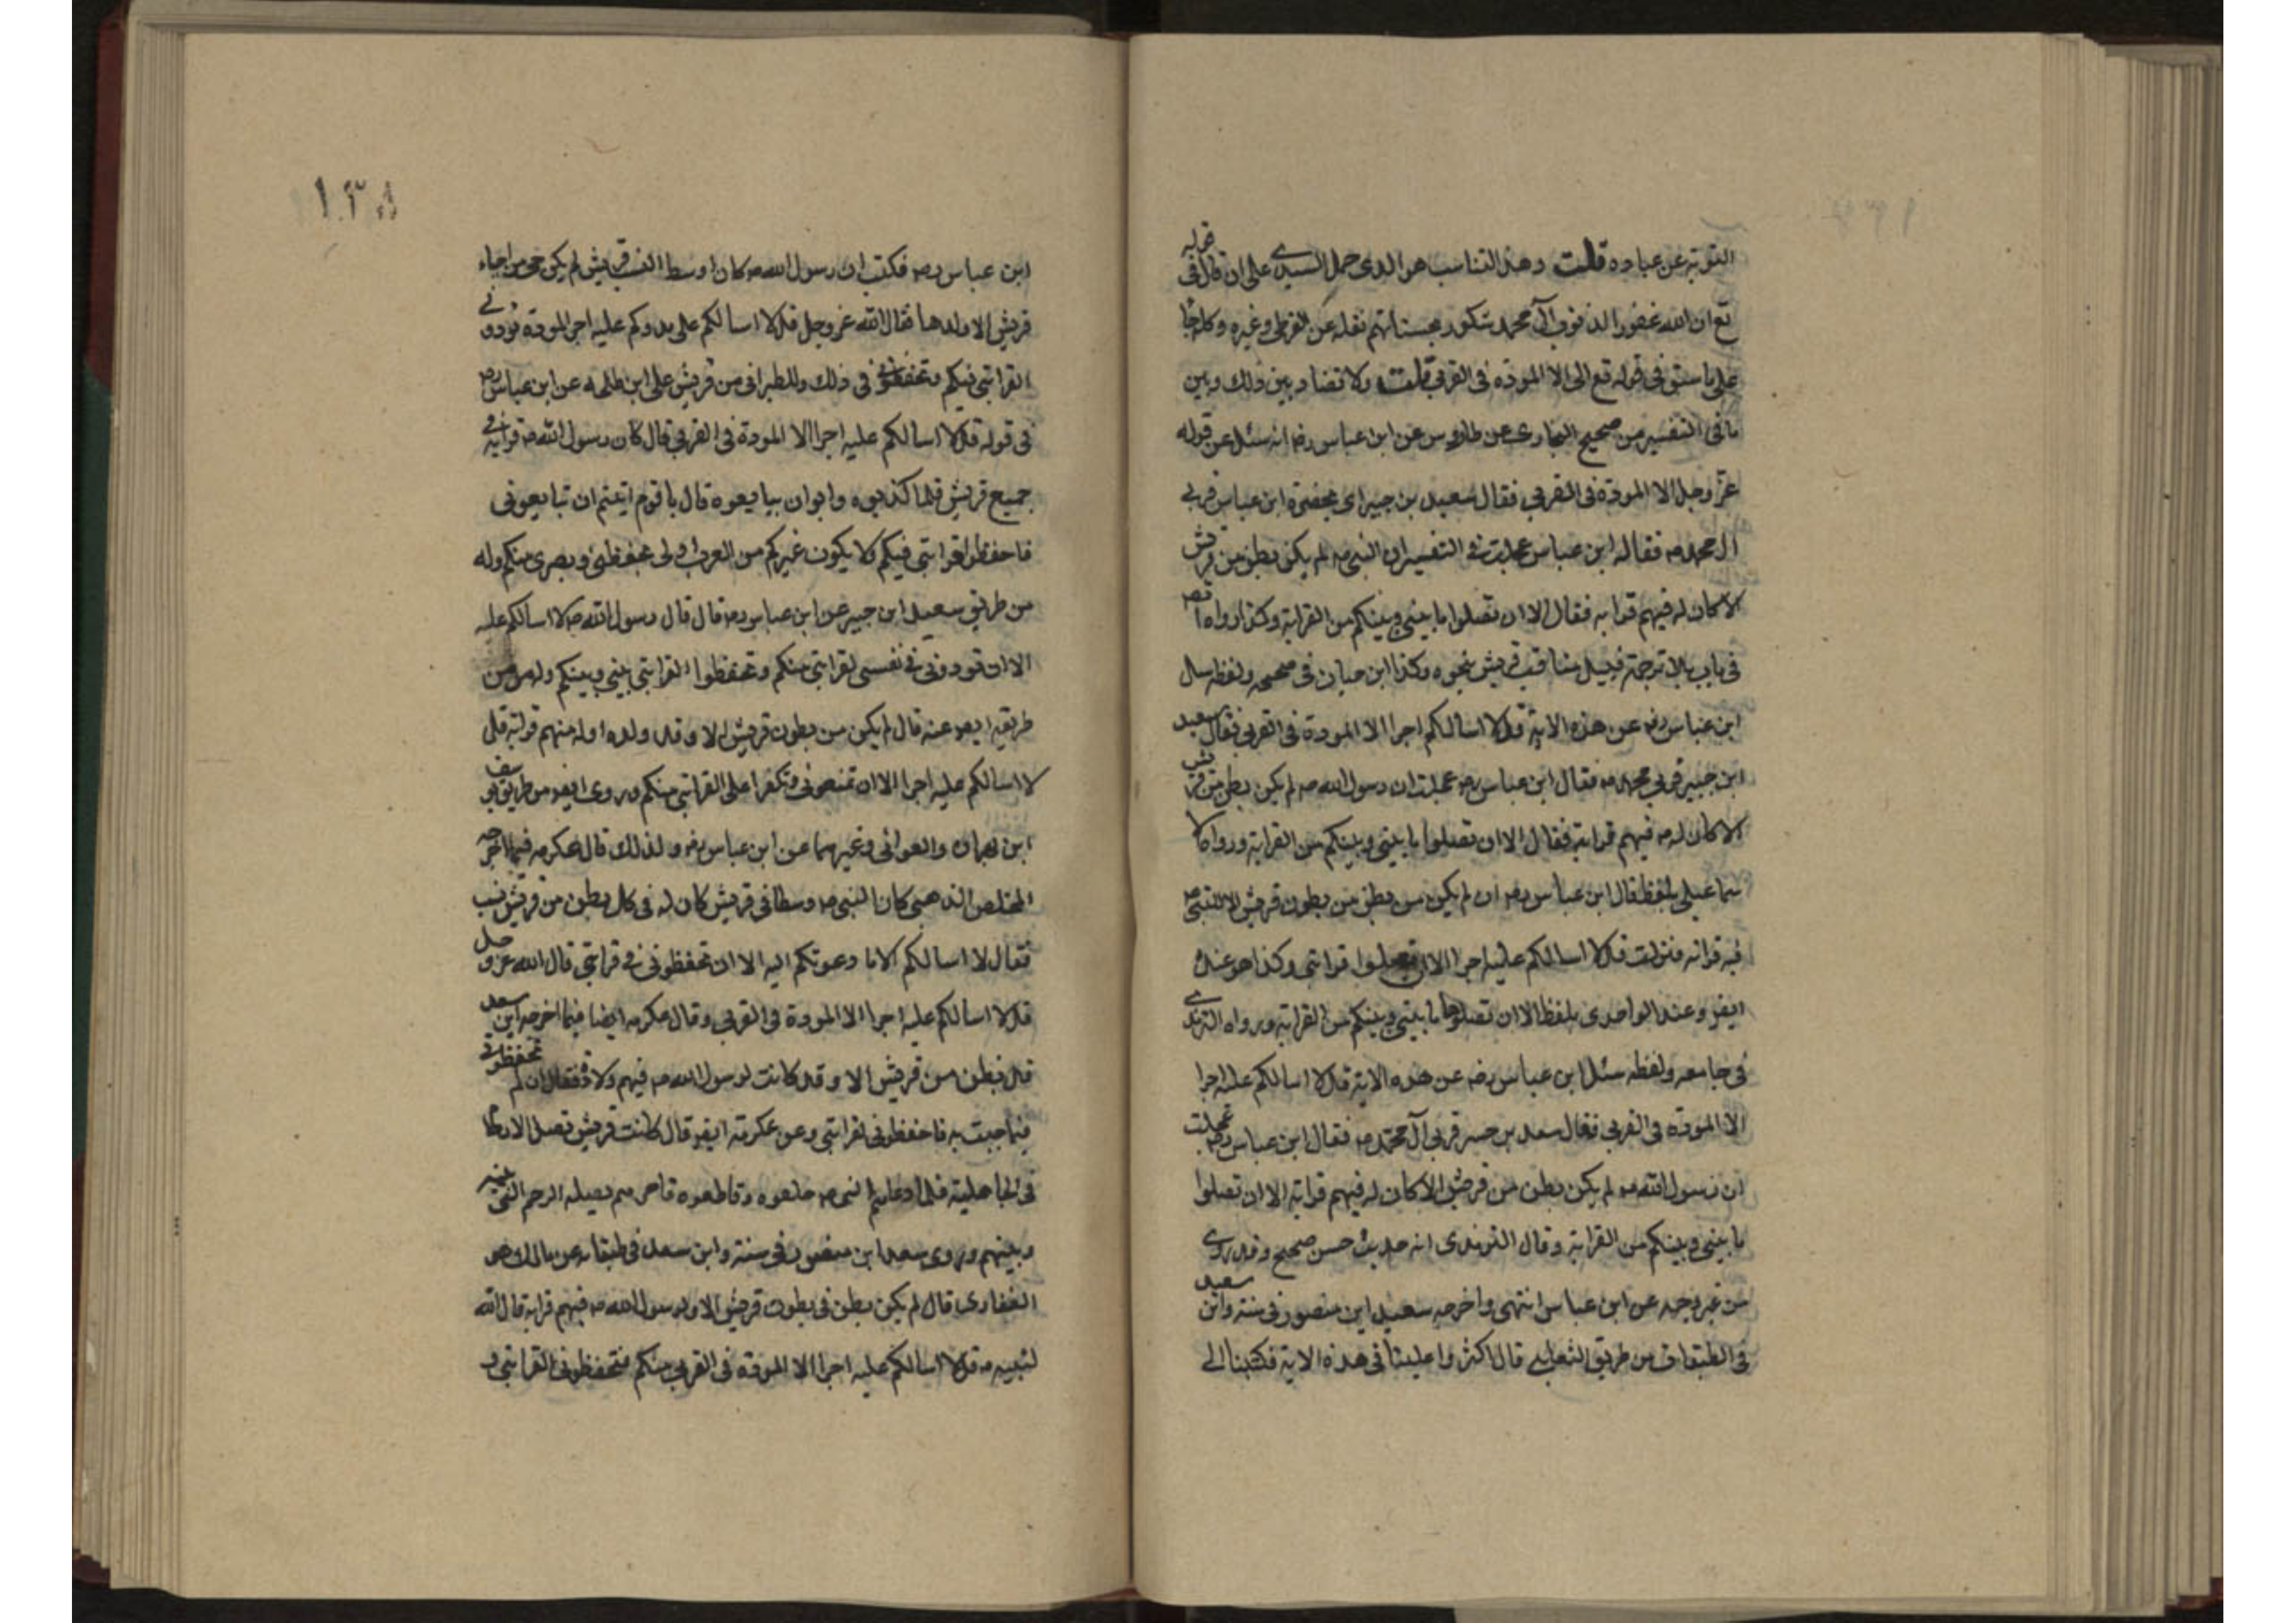 التوبة عن عباده قلت وهذا التناسب هو الذى حمل السدى على ان قال فى قوله
تع ان الله غفور الذنوب آل محمد شكور بحسناتهم نقله عن القرطبى وغيره وكله
على ما سبق فى قوله تع الى الا المودة فى القربى قلت ولا تضاد بين ذلك وبين
ما فى التفسير من صحيح البخارى عن طاوس عن ابن عباس رضه انه سئل عن قوله
عز وجل الا المودة فى القربى فقال سعيد بن جبير اى بحضرة ابن عباس قربى
ال محمد صه فقال له ابن عباس عجلت فى التفسير ان النبى صه لم يكن بطن من قريش
الا كان له فيهم قرابه فقال الا ان تصلوا ما بينى وبينكم من القرابة وكذا رواه
فى باب بلا ترجمة قبيل مناقب قريش نحوه وكذا ابن حبان فى صحيحه ولفظه سال
ابن عباس رضه عن هذه الاية قل لا اسالكم اجرا الا المودة فى القربى فقال سعيد
ابن جبير قربى محمد صه فقال ابن عباس رضه عجلت ان رسول الله صه لم يكن بطن من قريش
الا كان له صه فيهم قرابة فقال الا ان تصلوا ما بينى وبينكم من القرابة ورواه الا
سماعيلى بلفظ قال ابن عباس رضه ان لم يكن من بطن من بطون قريش الا للنبى صه
فيه قرابه فنزلت قل لا اسالكم عليه اجرا الا ان تصلوا قرابتى وكذا هو عند
ايضر وعند الواحدى بلفظ الا ان تصلوا ما بينى وبينكم من القرابة ورواه الترمذى
فى جامعه ولفظه سئل ابن عباس رضه عن هذه الاية قل لا اسالكم عليه اجرا
الا المودة فى القربى فقال سعيد بن جبير قربى آل محمد صه فقال ابن عباس رضه عجلت
ان رسول الله صه لم يكن بطن من قريش الا كان له فيهم قرابة الا ان تصلوا
ما بينى وبينكم من القرابة وقال الترمذى انه حديث حسن صحيح وقد روى
من غير وجه عن ابن عباس انتهى واخرجه سعيد ابن منصور فى سننه وابن سعيد
فى الطبقات من طريق الشعبى قال اكثروا علينا فى هذه الاية فكتبنا الى
١٣٨
ابن عباس رضه فكتب ان رسول الله صه كان اوسط النسب قريش لم يكن حى من احياء
قريش الا ولدها فقال الله عز وجل قل لا اسالكم على ما ادعوكم عليه اجرا المودة تودونى
القرابتى فيكم وتحفظونى فى ذلك وللطبرانى من على ابن طلحه عن ابن عباس رضه
فى قوله قل لا اسالكم عليه اجرا الا المودة فى القربى قال كان رسول الله صه قرابة فى
جميع قريش فلما كذبوه وابوان يبايعوه قال يا قوم ابيتم ان تبايعونى
فاحفظوا قرابتى فيكم ولا يكون غيركم من العرب اولى بحفظى ونصرى منكم وله
من طريق سعيد ابن جبير عن ابن عباس رضه قال قال رسول الله صه لا اسالكم عليه
الا ان تودونى فى نفسى لقرابتى منكم وتحفظوا القرابتى بينى وبينكم وله من
طريقه ايضر عنه قال لم يكن من بطون قريش الا وقد ولده اوله منهم قرابة قل
لا اسالكم عليه اجرا الا ان القرابتى منكم وروى ايضر من طريق يوسف
ابن مهران والعوفى وغيرهما عن ابن عباس رضه ولذلك قال عكرمه فيما اخرجه
المخلص الذهبى كان النبى صه وسطا فى قريش كان له فى كل بطن من قريش نسب
فقال لا اسالكم الا ما دعوتكم اليه الا ان تحفظونى فى قرابتى قال الله عز وجل
قل لا اسالكم عليه اجرا الا المودة فى القربى وقال عكرمه ايضا فيما اخرجه ابن سعد
قل بطن من قريش الا وقد كانت لرسول الله صه فيهم ولادة فقال ان لم تحفظونى
فيما جيت به فاحفظونى لقرابتى وعن عكرمة ايضر قال كانت قريش تصل الارحام
فى الجاهلية فلما دعاهم النبى صه خالفوه وقاطعوه فامرهم بصله الرحم التى بينه
وبينهم وروى سعد ابن منصور فى سننه وابن سعد فى طبقاته عن مالك هو
الغفارى قال لم يكن بطن فى بطون قريش الا ولرسول الله صه فيهم قرابة قال الله
لنبيه صه قل لا اسالكم عليه اجرا الا المودة فى القربى منكم فتحفظونى القرابتى و